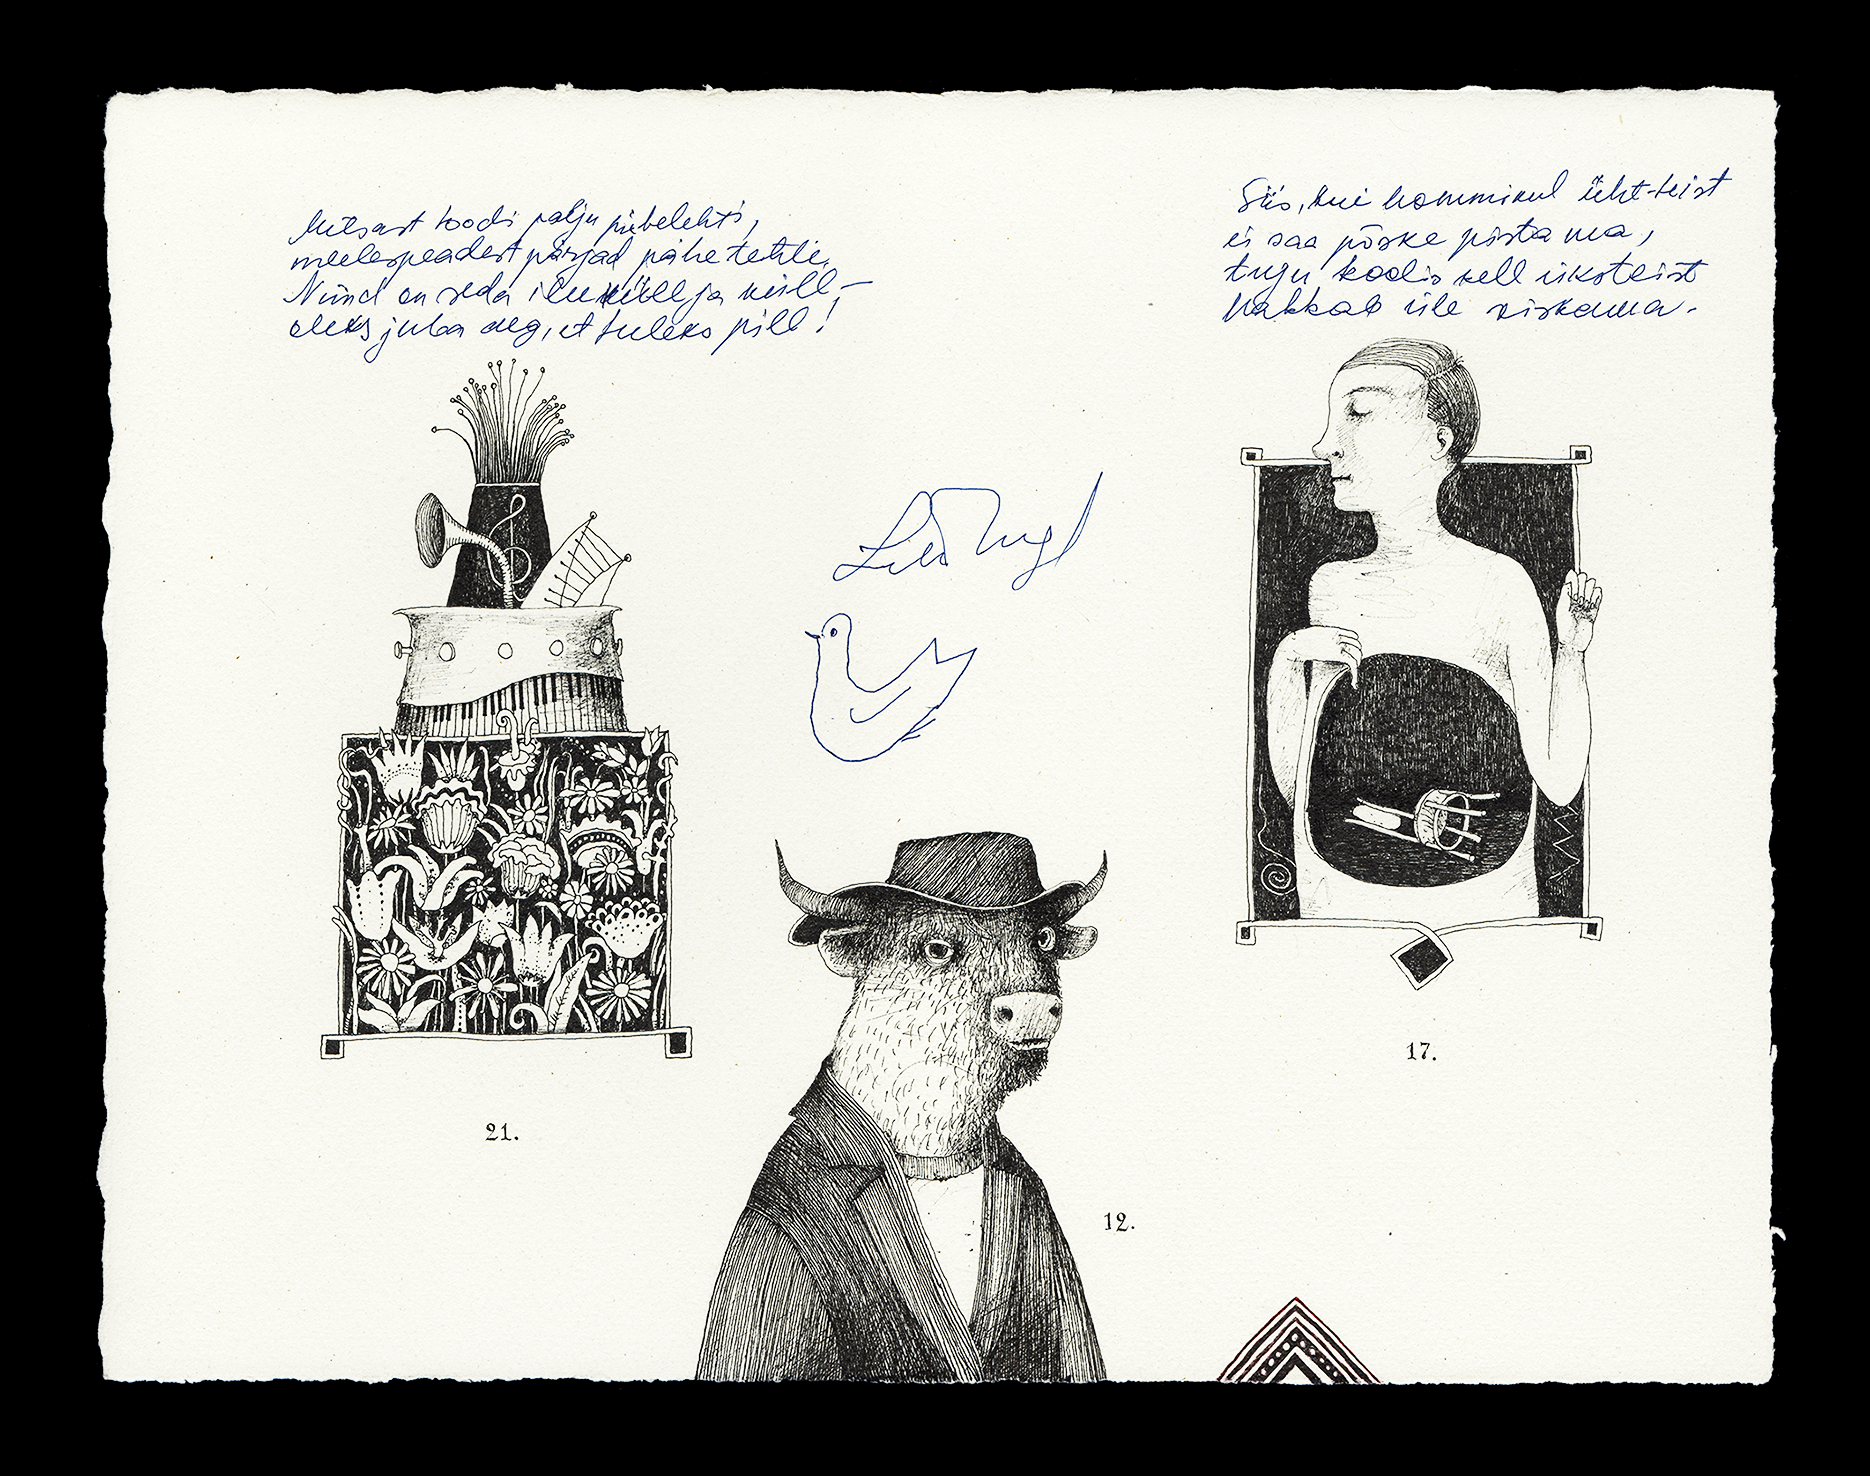 Metsast toodi palju piibelehti,
meelespeadest pärjad pähe tehti.
Nüüd on seda ilu küll ja küll –
oleks juba aeg, et tuleks pill!
Siis, kui hommikul üht-teist
ei saa põske pista ma,
tugu koolis kell üksteist
hakkab üle viskama.
21.
17.
12.